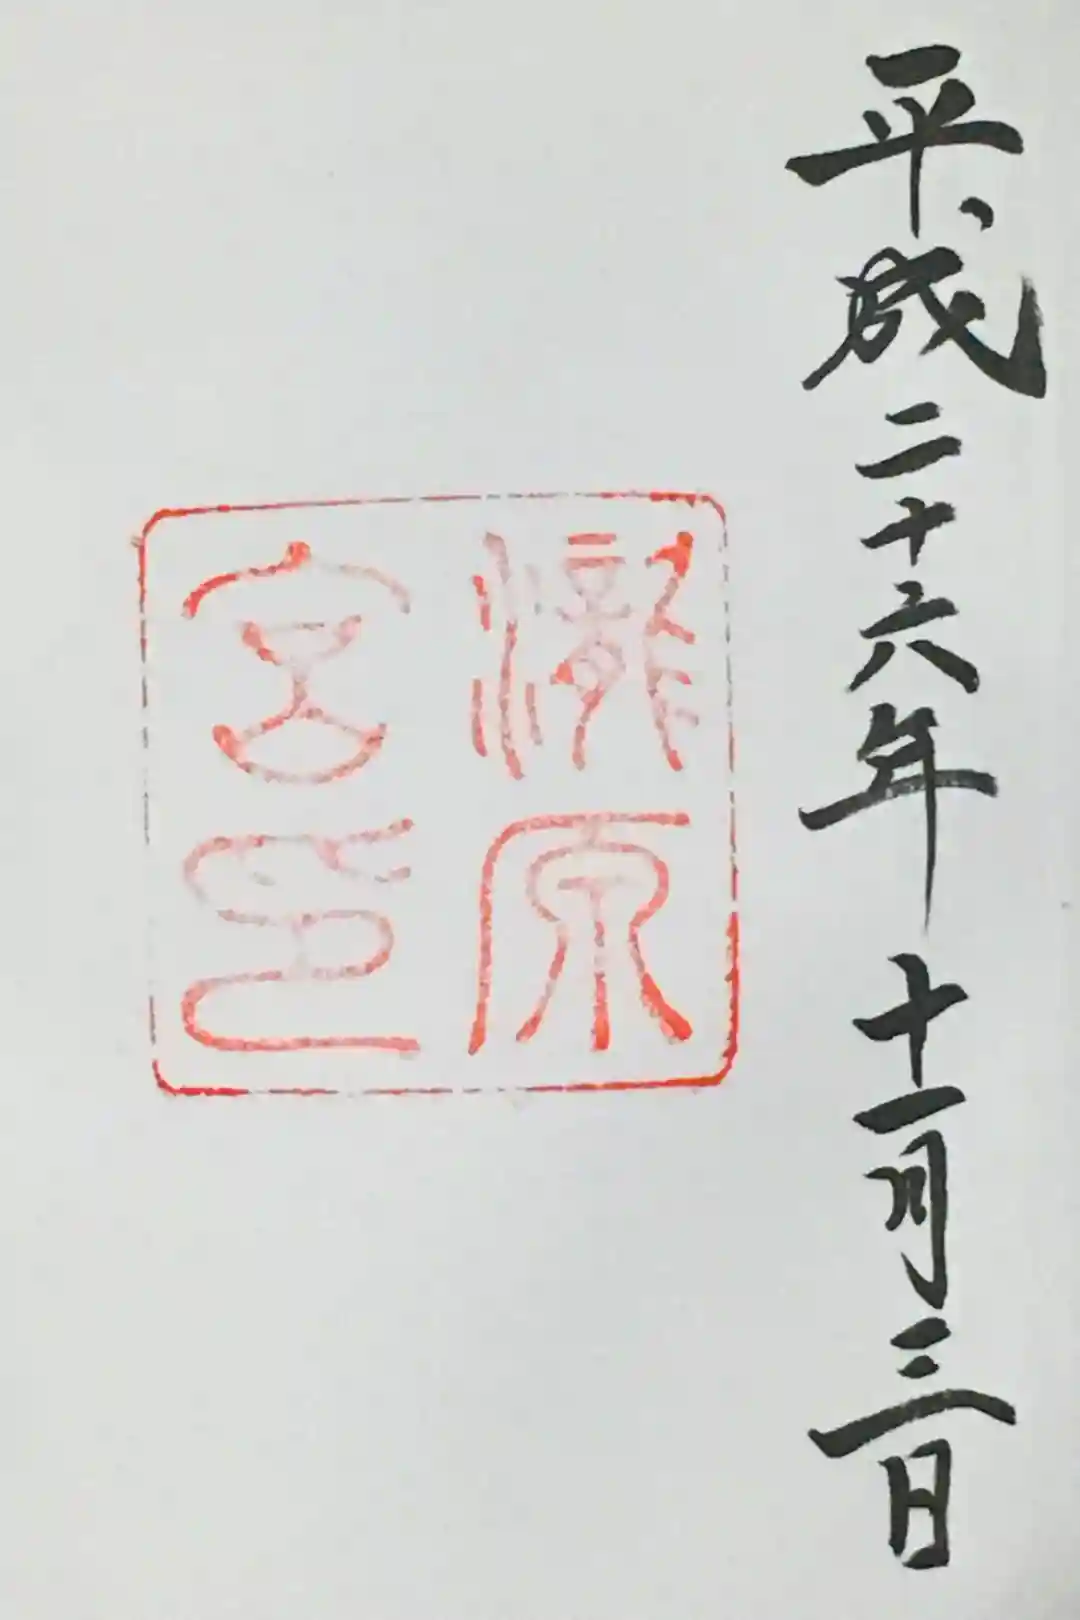 平成二十六年十一月三日
瀧原
宮印